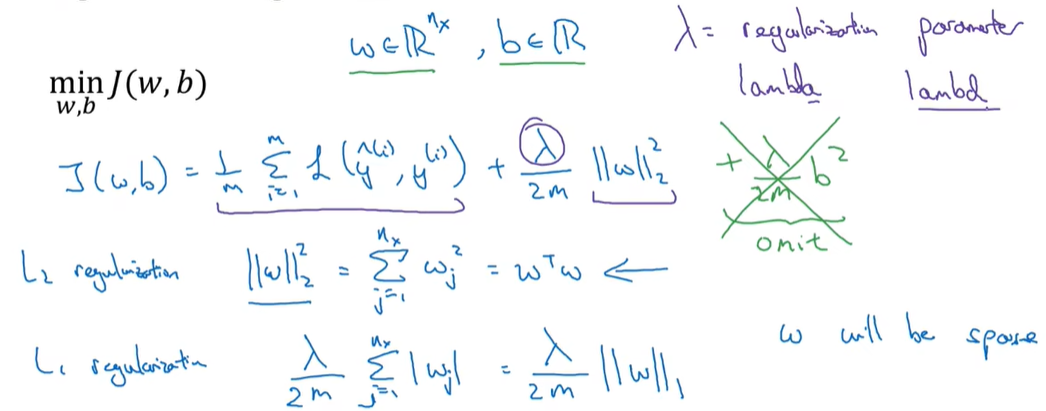 w ∈ ℝ^{n_x}, b ∈ ℝ
λ = regularization parameter
lambda lambd
min_{w,b} J(w, b)
J(w,b) = \frac{1}{m} \sum_{i=1}^{m} L(ŷ^{(i)}, y^{(i)}) + \frac{λ}{2m} ||w||_2^2 + \frac{λ}{2m} b^2
omit
L_2 regularization ||w||_2^2 = \sum_{j=1}^{n_x} w_j^2 = w^T w ←
L_1 regularization \frac{λ}{2m} \sum_{j=1}^{n_x} |w_j| = \frac{λ}{2m} ||w||_1 w will be sparse